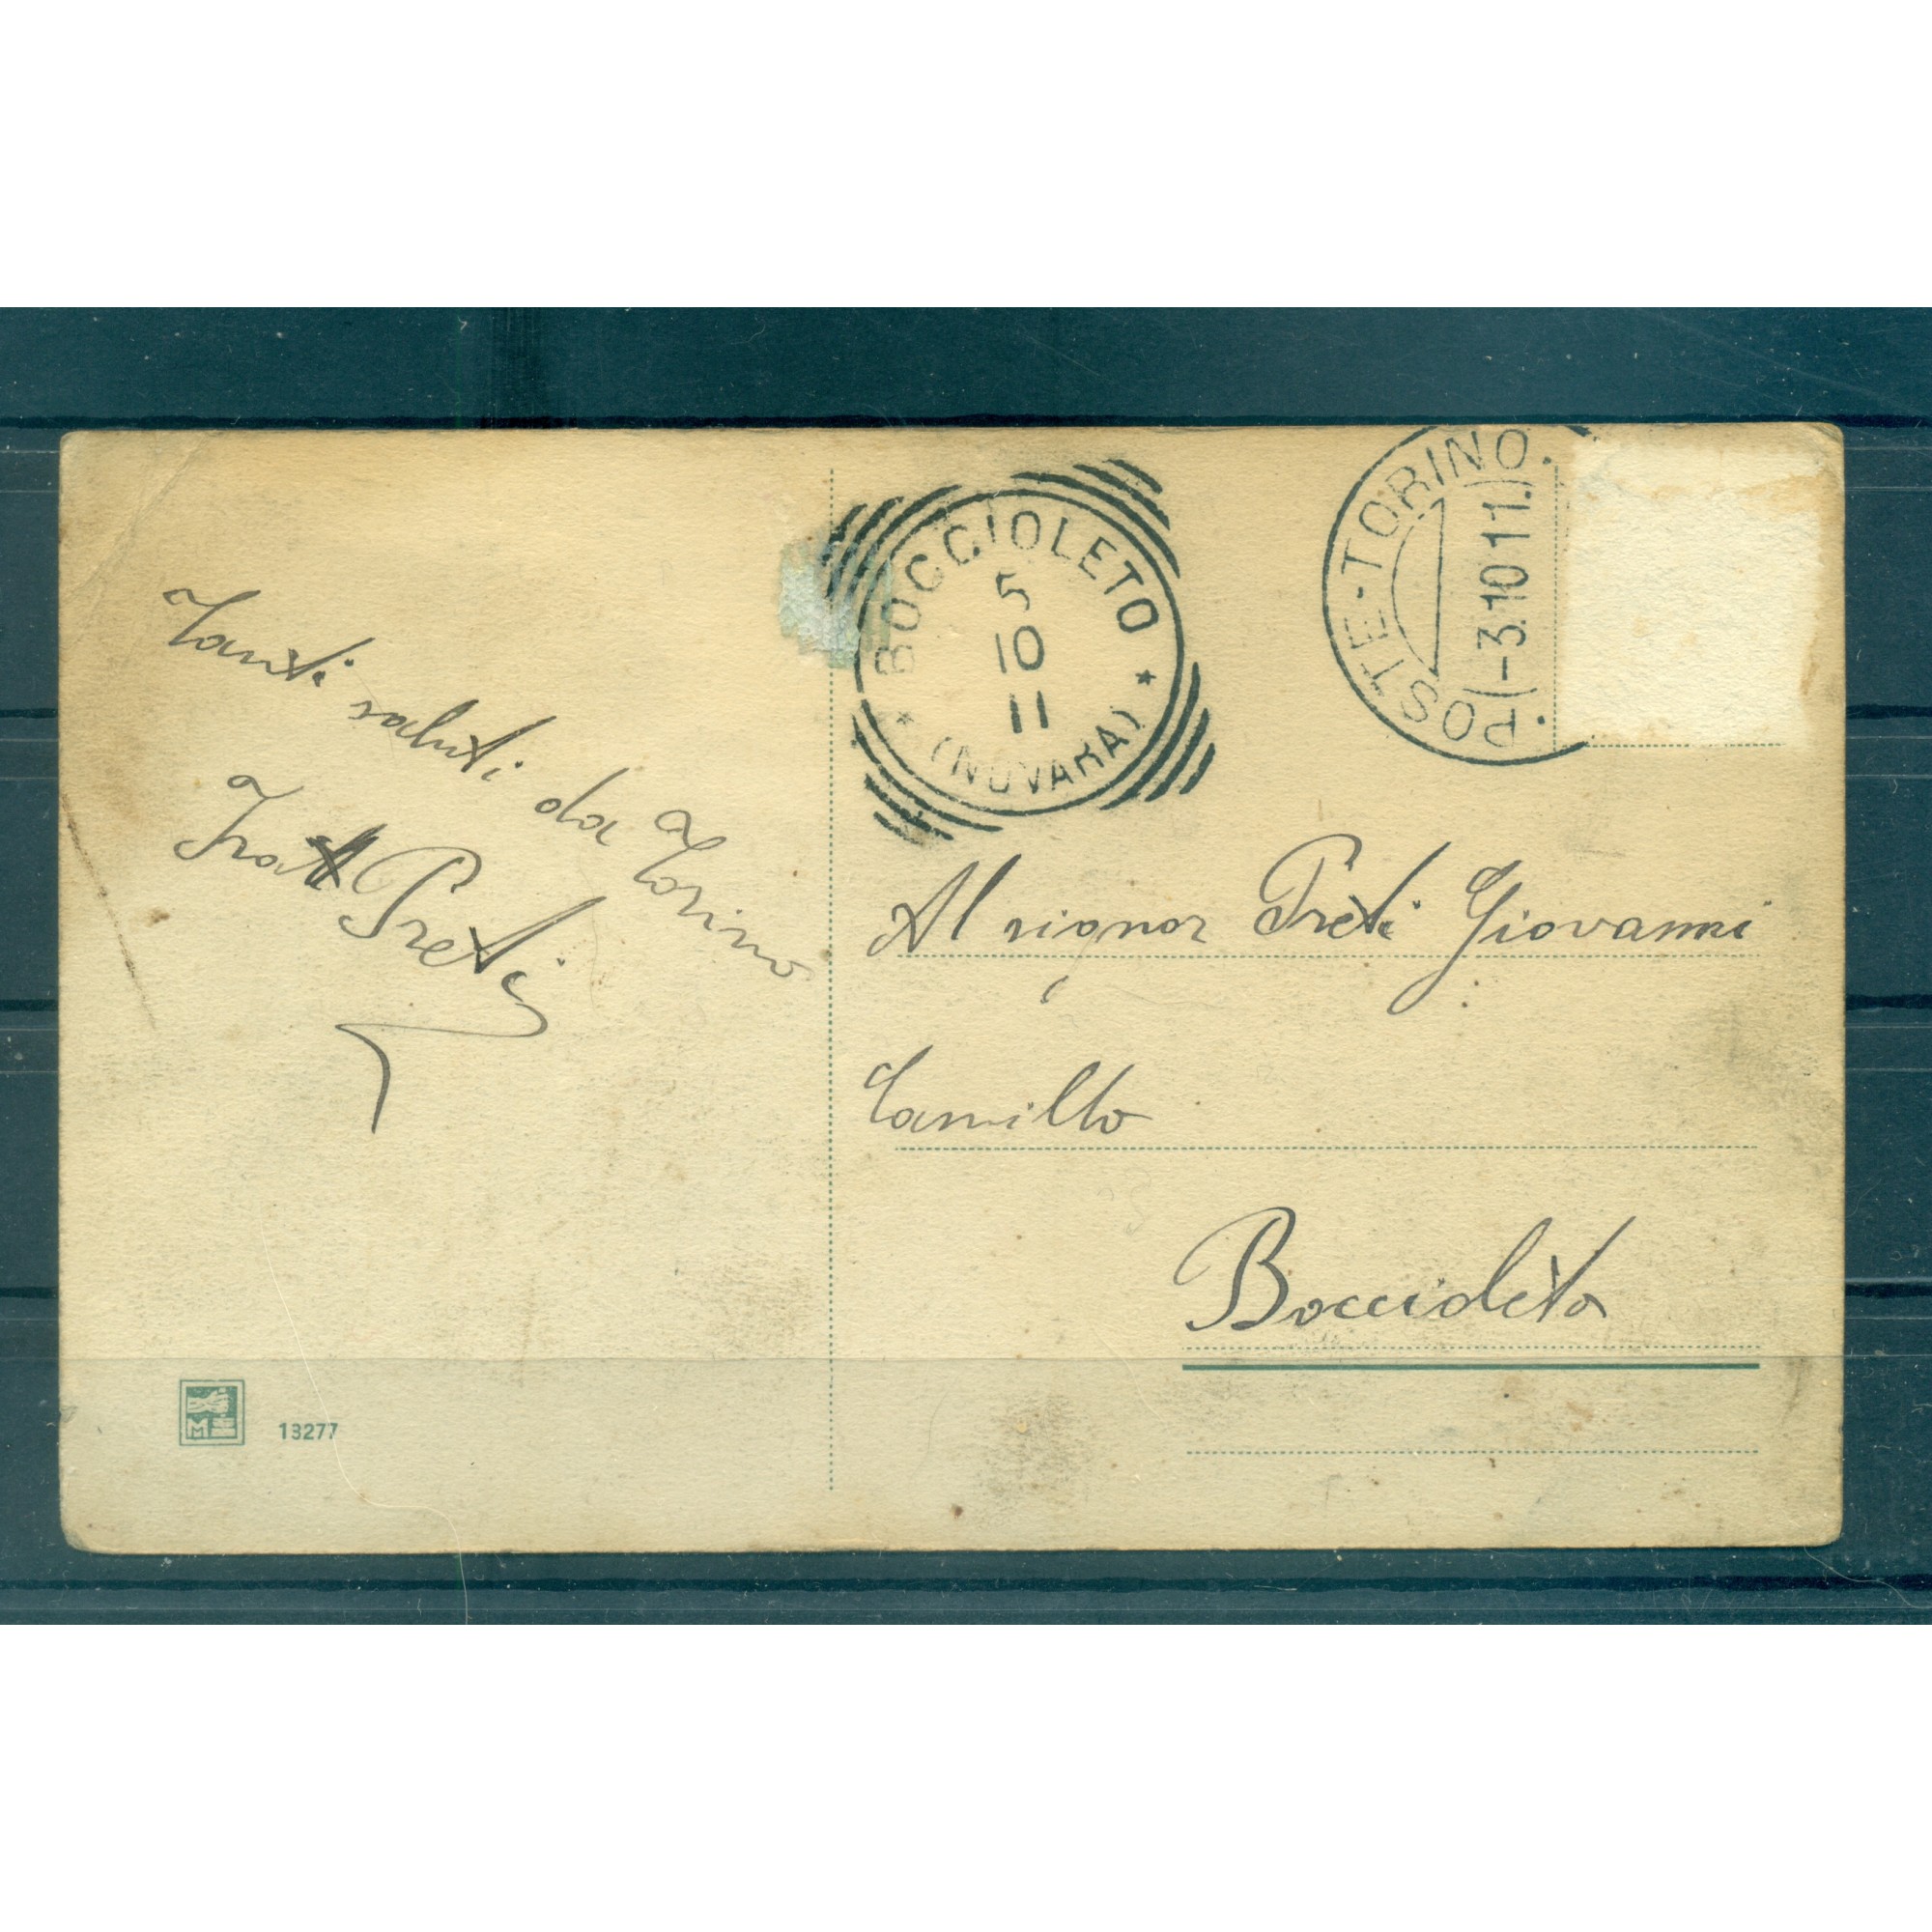 Tanti saluti da Torino
Fratt Preti
BOCCIOLETO
5
10
11
(NOVARA)
POSTE - TORINO.
(-3.10 11.)
Al signor Preti Giovanni
Camillo
Boccioleto
M
13277